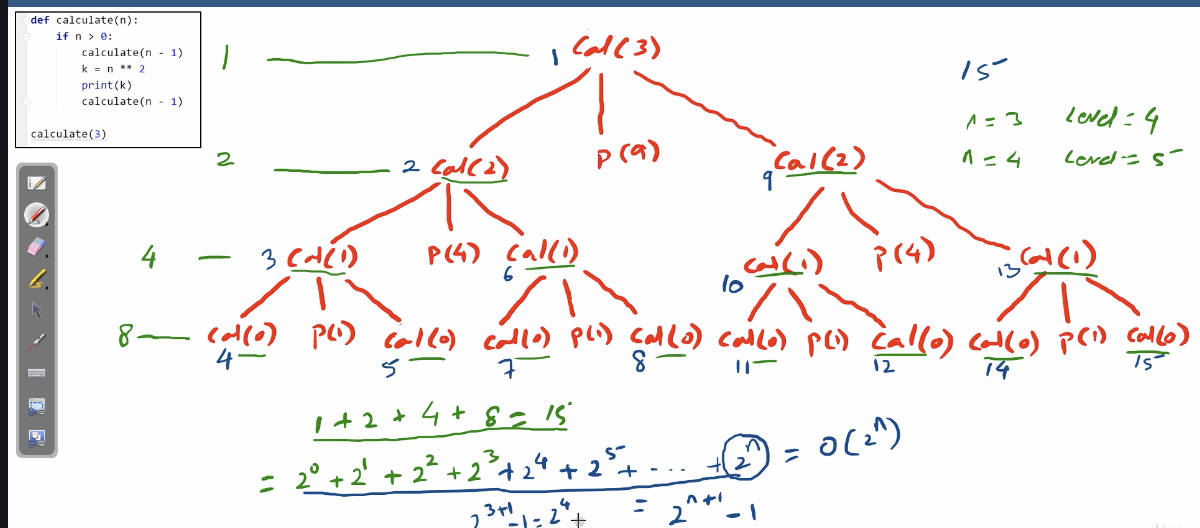 def calculate(n):
if n > 0:
calculate(n - 1)
k = n ** 2
print(k)
calculate(n - 1)
calculate(3)
1 1 Cal(3) 15
n = 3 Level = 4
n = 4 Level = 5
2 2 Cal(2) P(9) 9 Cal(2)
4 3 Cal(1) P(4) 6 Cal(1) 10 Cal(1) P(4) 13 Cal(1)
8 Cal(0) P(1) Cal(0) Cal(0) P(1) Cal(0) Cal(0) P(1) Cal(0) Cal(0) P(1) Cal(0)
4 5 7 8 11 12 14 15
1 + 2 + 4 + 8 = 15
= 2⁰ + 2¹ + 2² + 2³ + 2⁴ + 2⁵ + ---- + 2ⁿ = O(2ⁿ)
2³⁺¹ - 1 = 2⁴ = 2ⁿ⁺¹ - 1